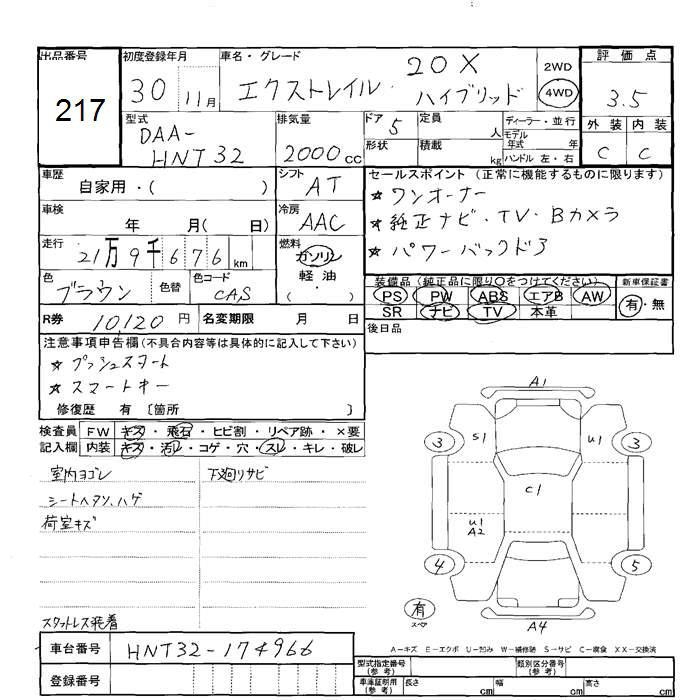 出品番号 初度登録年月 車名・グレード 評価点
217
30 11月
エクストレイル 20X
ハイブリッド
2WD
4WD
3.5
外装 内装
C C
型式 排気量 ドア 定員 ディーラー・並行
DAA-
HNT32
2000cc
5
人
モデル年式 年
形状 積載 kg ハンドル 左・右
車歴 シフト セールスポイント(正常に機能するものに限ります)
自家用・( )
AT
★ ワンオーナー
車検 冷房
年 月( 日)
AAC
★ 純正ナビ・TV・Bカメラ
走行 燃料
21万9千676km
ガソリン
軽油
・( )
★ パワーバックドア
色 色替 色コード
ブラウン
CAS
装備品(純正品に限り○をつけてください) 新車保証書
PS PW ABS エアB AW
SR ナビ TV 本革
有・無
R券 10120円 名変期限 月 日
後日品
注意事項申告欄(不具合内容等は具体的に記入して下さい)
★ プッシュスタート
★ スマートキー
修復歴 有 〔箇所 〕
検査員 FW キズ・飛石・ヒビ割・リペア跡・×要
記入欄 内装 キズ・汚レ・コゲ・穴・スレ・キレ・破レ
室内ヨゴレ 下廻リサビ
シートヘタリ、ハゲ
荷室キズ
スタットレス装着
A1
3 S1 U1 3
C1
U1
A2
4 5
有
スペア
A4
A-キズ E-エクボ U-凹み W-補修跡 S-サビ C-腐食 XX-交換済
車台番号 HNT32-174966
登録番号
型式指定番号(参考) 類別区分番号(参考)
車庫証明用(参考) 長さ cm 幅 cm 高さ cm